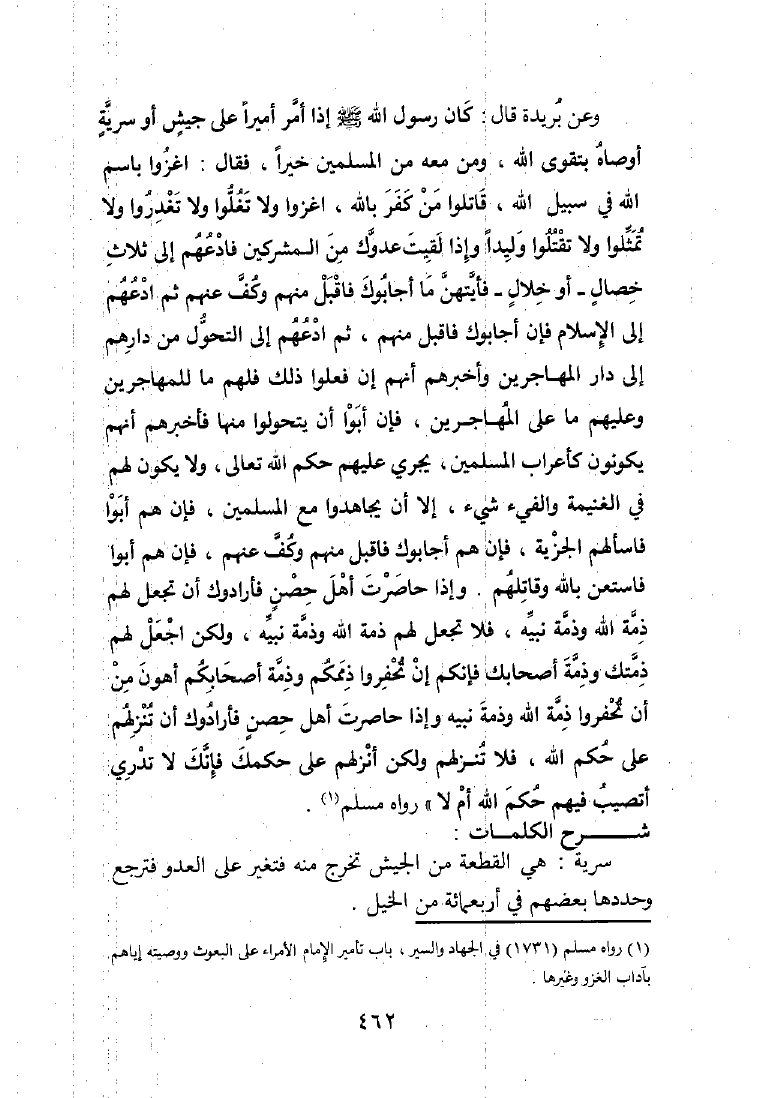 وعن بُريدة قال : كَان رسول الله ﷺ إذا أمَّر أميراً على جيشٍ أو سريَّةٍ
أوصاهُ بتقوى الله ، ومن معه من المسلمين خيراً ، فقال : اغزُوا باسم
الله في سبيل الله ، قَاتلوا مَنْ كَفَرَ بالله ، اغزوا ولا تَغُلُّوا ولا تَغْدِرُوا ولا
تُمَثِّلوا ولا تقْتُلُوا وَليداً وإذا لَقيتَ عدوَّك منَ الـمشركين فادْعُهُم إلى ثلاثِ
خِصالٍ ـ أو خِلالٍ ـ فأيَّتهنَّ مَا أجابُوكَ فاقْبَلْ منهم وكُفَّ عنهم ثم ادْعُهُم
إلى الإسلام فإن أجابوك فاقبل منهم ، ثم ادْعُهُم إلى التحوُّل من دارِهم
إلى دار المهـاجرين وأخبرهم أنهم إن فعلوا ذلك فلهم ما للمهاجرين
وعليهم ما على المُهـاجـرين ، فإن أبَوْا أن يتحولوا منها فأخبرهم أنهم
يكونون كأعراب المسلمين، يجري عليهم حكم الله تعالى، ولا يكون لهم
في الغنيمة والفيء شيء ، إلا أن يجاهدوا مع المسلمين ، فإن هم أبَوْا
فاسألهم الجزْية ، فإن هم أجابوك فاقبل منهم وكُفَّ عنهم ، فإن هم أبوا
فاستعن بالله وقاتِلهُم . وإذا حاصَرْتَ أهْلَ حِصْنٍ فأرادوك أن تجعل لهم
ذمَّة الله وذمَّة نبيِّه ، فلا تجعل لهم ذمة الله وذمَّة نبيِّه ، ولكن اجْعَلْ لهم
ذِمَّتك وذمَّةَ أصحابك فإنكم إنْ تُخْفِروا ذِمَمَكُم وذمَّة أصحَابِكُم أهونَ مِنْ
أن تُخْفروا ذمَّة الله وذمةَ نبيه وإذا حاصرتَ أهل حِصنٍ فأرادُوك أن تُنْزِلهُم
على حُكم الله ، فلا تُنـزلهم ولكن أنْزلهم على حكمكَ فإنَّكَ لا تدْرِي
أتصيبُ فيهم حُكمَ الله أمْ لا » رواه مسلم(١) .
شــــــرح الكلمـــات :
سرية : هي القطعة من الجيش تخرج منه فتغير على العدو فترجع
وحددها بعضهم في أربعمائة من الخيل .
(١) رواه مسلم (١٧٣١) في الجهاد والسير ، باب تأمير الإمام الأمراء على البعوث ووصيته إياهم
بآداب الغزو وغيرها .
٤٦٢